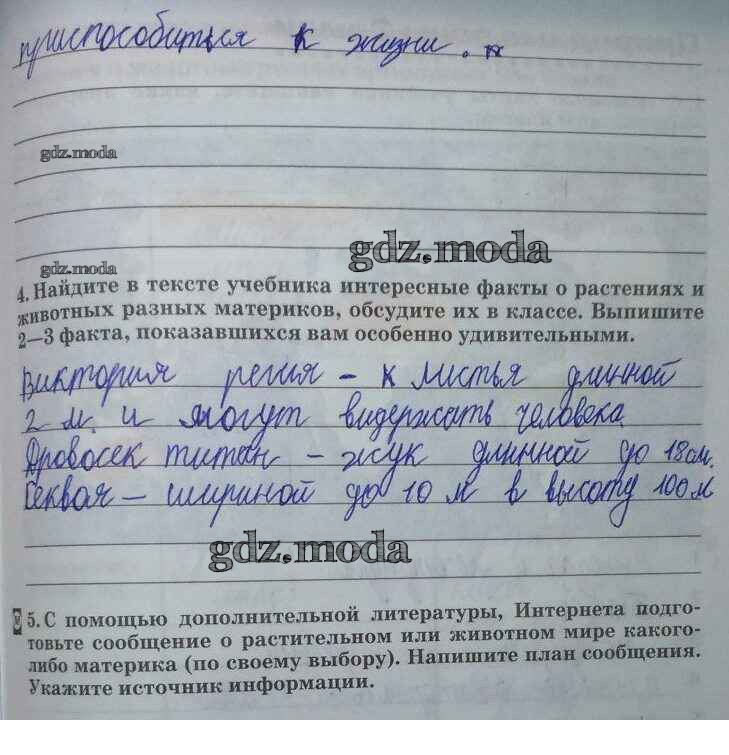 приспособиться к жизни.
gdz.moda
gdz.moda
gdz.moda
4. Найдите в тексте учебника интересные факты о растениях и
животных разных материков, обсудите их в классе. Выпишите
2—3 факта, показавшихся вам особенно удивительными.
Виктория регия - к листья длинной
2 м. и могут видержать человека.
Дровосек титан - жук длинной до 18 см.
Секвоя - шириной до 10 м в высоту 100 м
gdz.moda
5. С помощью дополнительной литературы, Интернета подго-
товьте сообщение о растительном или животном мире какого-
либо материка (по своему выбору). Напишите план сообщения.
Укажите источник информации.